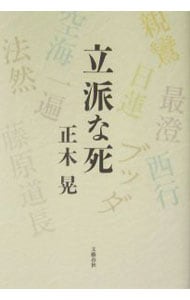 親鸞
日蓮
最澄
空海
一遍
ブッダ
西行
法然
藤原道長
立派な死
正木晃
文藝春秋